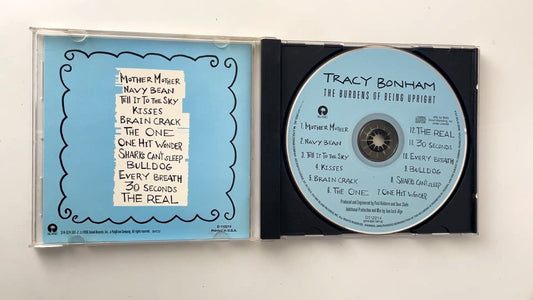 MOTHER MOTHER
NAVY BEAN
TELL IT TO THE SKY
KISSES
BRAIN CRACK
THE ONE
ONE HIT WONDER
SHARKS CAN'T SLEEP
BULLDOG
EVERY BREATH
30 SECONDS
THE REAL
TRACY BONHAM
THE BURDENS OF BEING UPRIGHT
1. MOTHER MOTHER
2. NAVY BEAN
3. TELL IT TO THE SKY
4. KISSES
5. BRAIN CRACK
6. THE ONE
12. THE REAL
11. 30 SECONDS
10. EVERY BREATH
9. BULLDOG
8. SHARKS CAN'T SLEEP
7. ONE HIT WONDER
Produced and Engineered by Paul Kolderie and Sean Slade
Additional Production and Mix by Tom Lord-Alge